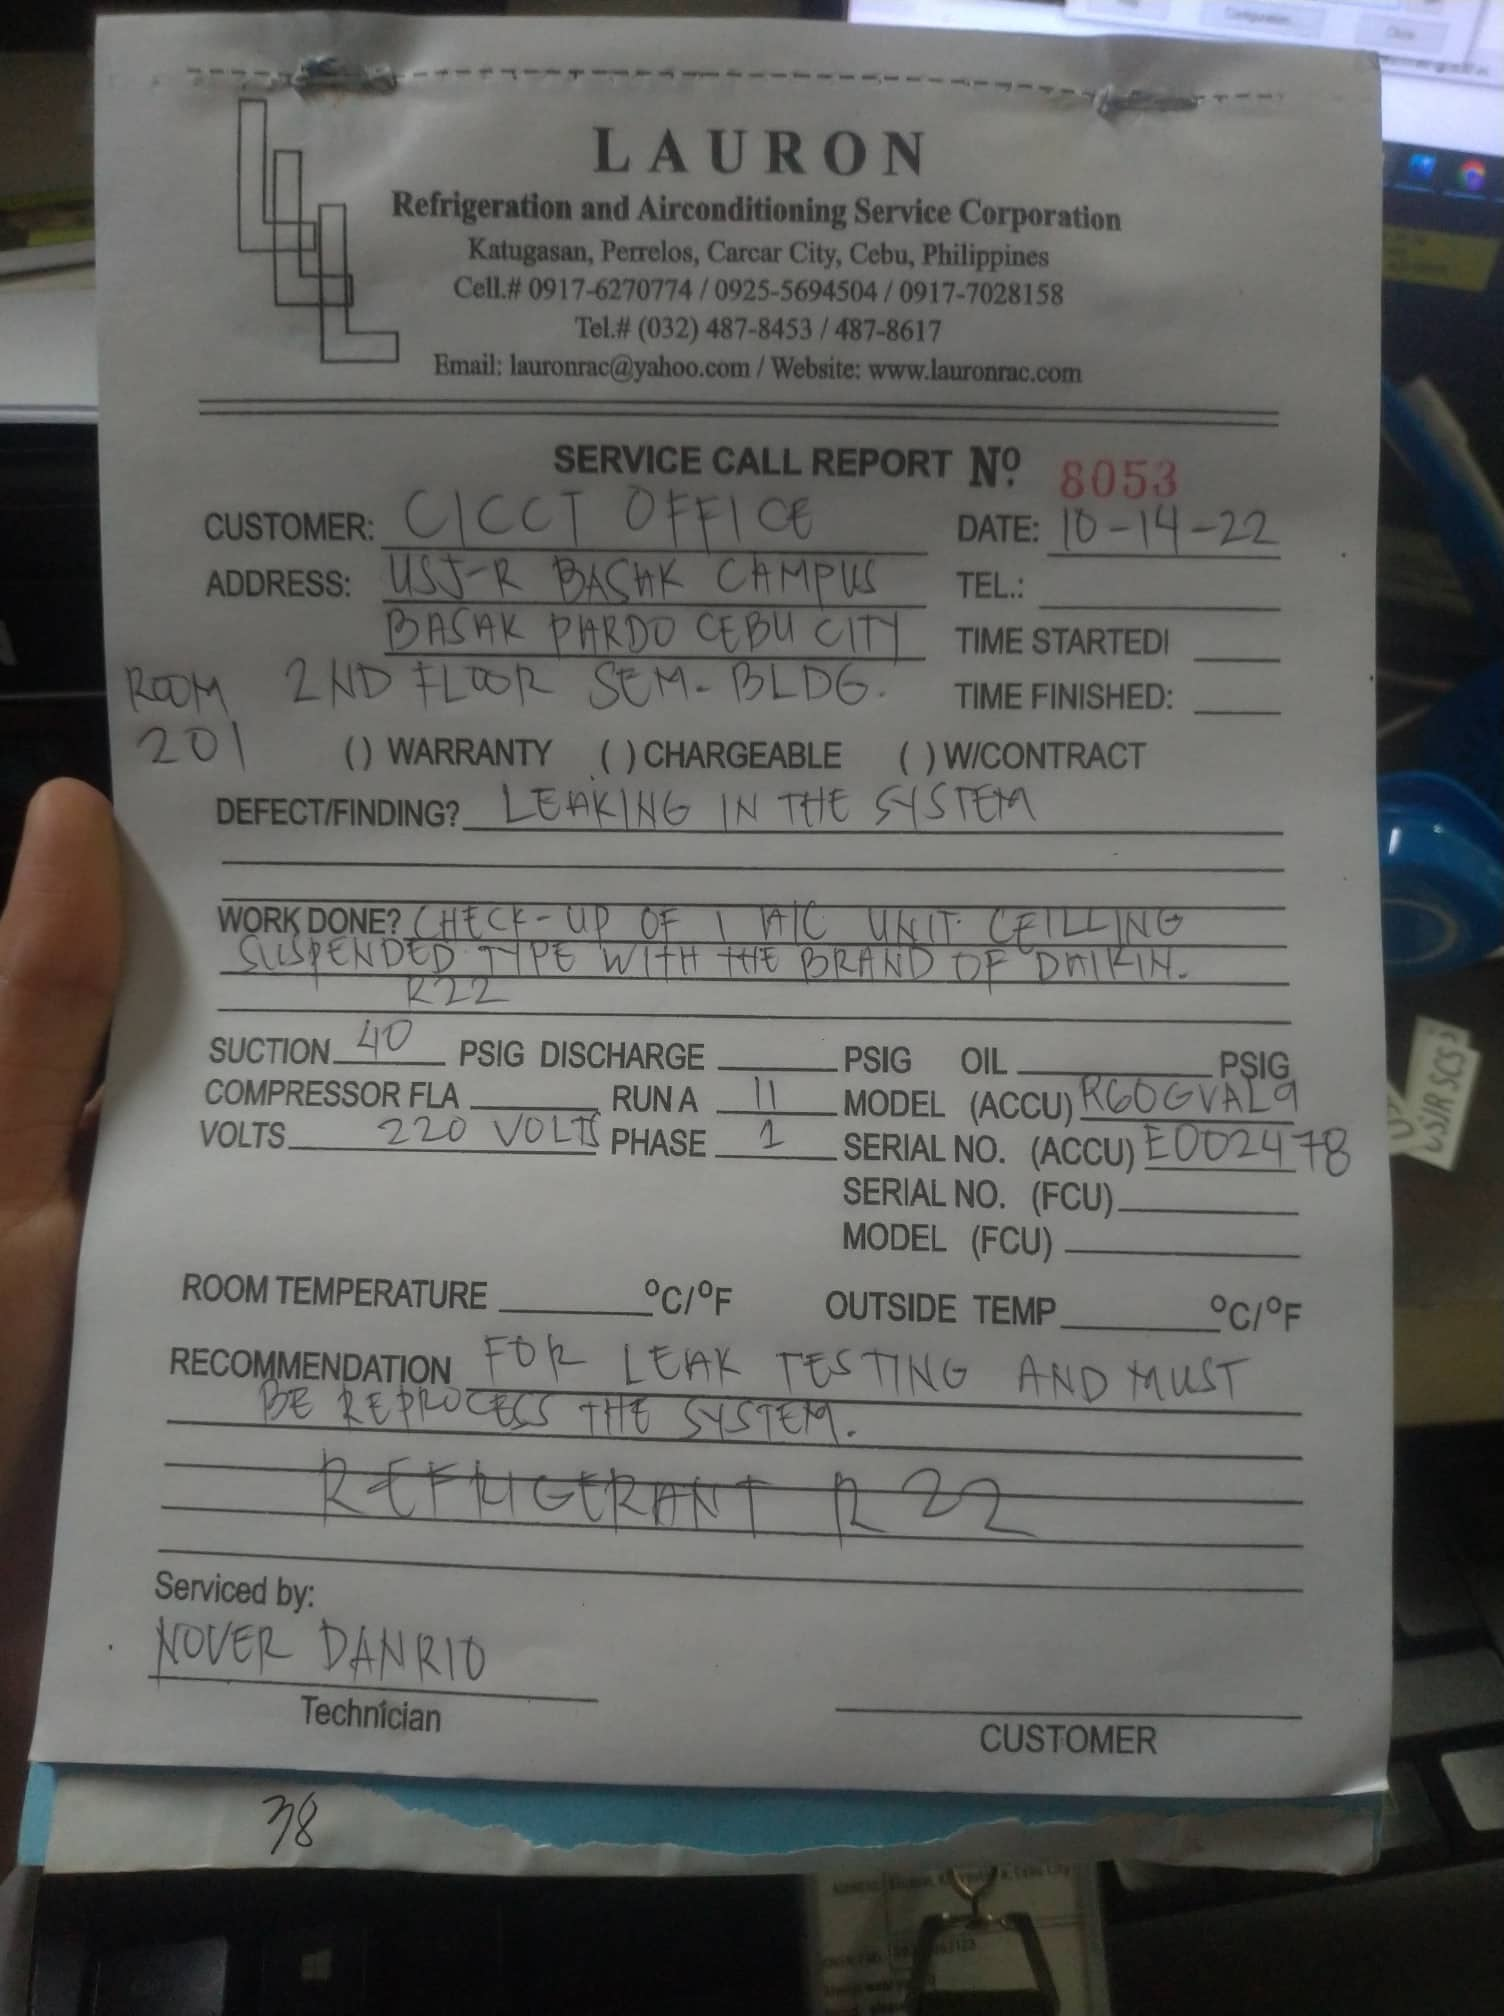 LAURON
Refrigeration and Airconditioning Service Corporation
Katugasan, Perrelos, Carcar City, Cebu, Philippines
Cell.# 0917-6270774 / 0925-5694504 / 0917-7028158
Tel.# (032) 487-8453 / 487-8617
Email: lauronrac@yahoo.com / Website: www.lauronrac.com
SERVICE CALL REPORT Nº. 8053
CUSTOMER: CICCT OFFICE DATE: 10-14-22
ADDRESS: USJ-R BASAK CAMPUS TEL.:
BASAK PARDO CEBU CITY TIME STARTED
ROOM 2ND FLOOR SEM. BLDG. TIME FINISHED:
201 ( ) WARRANTY ( ) CHARGEABLE ( ) W/CONTRACT
DEFECT/FINDING? LEAKING IN THE SYSTEM
WORK DONE? CHECK-UP OF 1 A/C UNIT. CEILLING
SUSPENDED TYPE WITH THE BRAND OF DAIKIN.
R22
SUCTION 40 PSIG DISCHARGE PSIG OIL PSIG
COMPRESSOR FLA RUN A 11 MODEL (ACCU) R60GVAL9
VOLTS 220 VOLTS PHASE 1 SERIAL NO. (ACCU) E002478
SERIAL NO. (FCU)
MODEL (FCU)
ROOM TEMPERATURE ºC/ºF OUTSIDE TEMP ºC/ºF
RECOMMENDATION FOR LEAK TESTING AND MUST
BE REPROCESS THE SYSTEM.
REFRIGERANT R22
Serviced by:
NOVER DANRIO
Technician
CUSTOMER
38